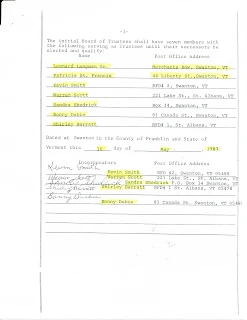 -2-
The initial Board of Trustees shall have seven members with
the following serving as Trustees until their successors be
elected and qualify:
Name Post Office Address
Leonard Lampman Sr. Merchants Row, Swanton, VT
Patricia St. Francis 40 Liberty St., Swanton, VT
Kevin Smith RFD# 2, Swanton, VT
Warren Scott 221 Lake St., St. Albans, VT
Sandra Shedrick Box 34, Swanton, VT
Bonny Dubie 93 Canada St., Swanton, VT
Shirley Barratt RFD# 1, St. Albans, VT
Dated at Swanton in the County of Franklin and State of
Vermont this 10 day of May 1983
Incorporators Post Office Address
Kevin Smith Kevin Smith RFD #2, Swanton, VT 05488
Warren Scott Warren Scott 221 Lake St., St. Albans, VT
Sandra Shedrick P.O. Box 34 Swanton, VT
Shirley Barratt RFD# 1 St. Albans, VT 05478
Bonny Dubie
Bonny Dubie 93 Canada St. Swanton, VT 05488